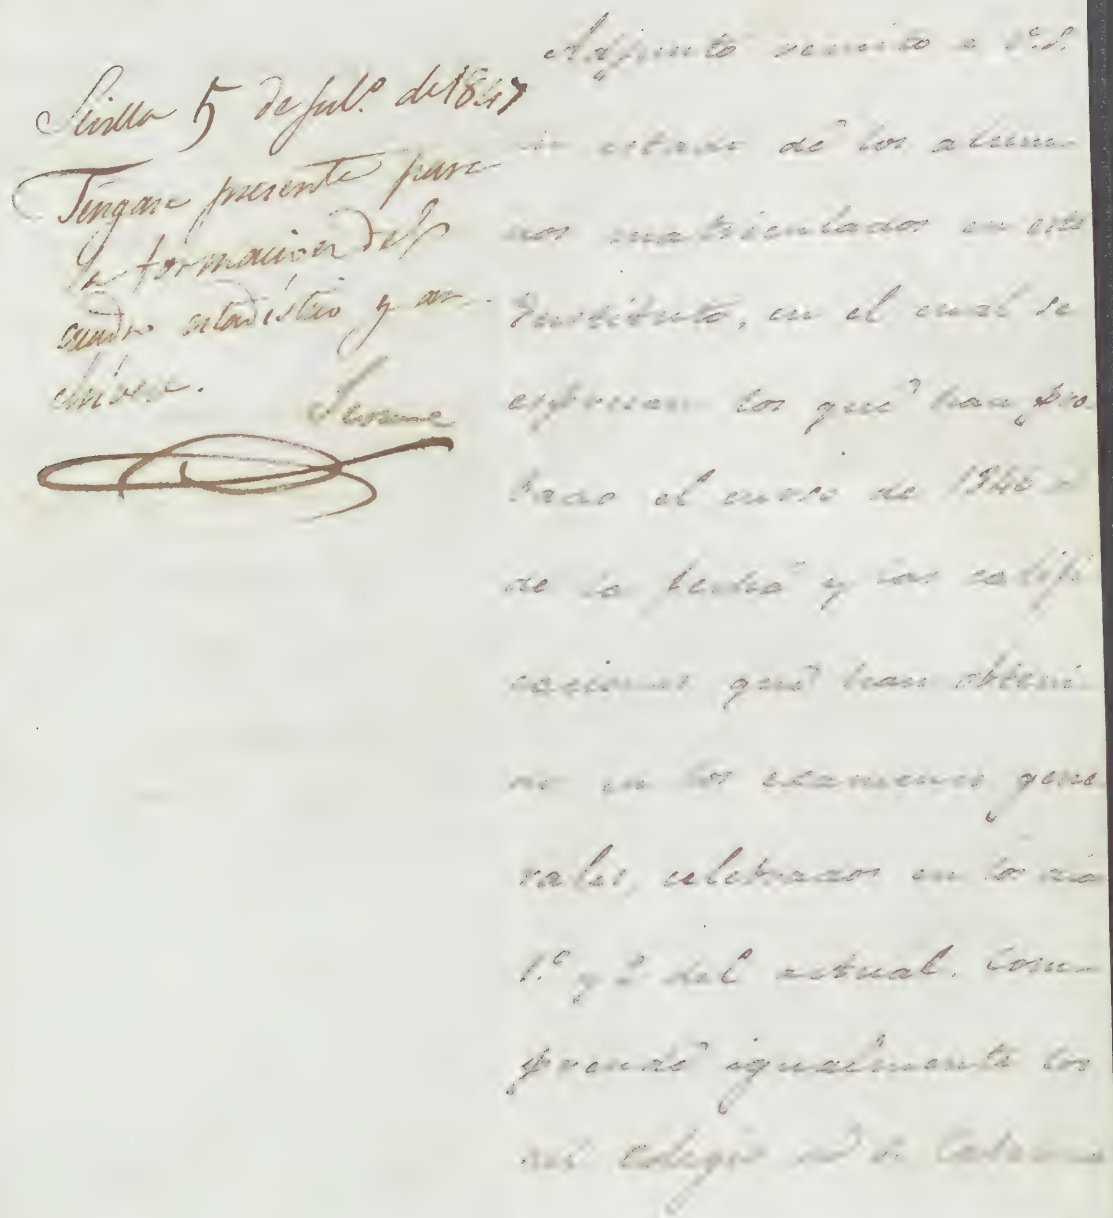 Sevilla 5 de Jul.º de 1847
Téngase presente para
la formacion del
cuadro estadístico y ar-
chívese.
Adjunto remito a V.S.
un estado de los alum-
nos matriculados en este
Instituto, en el cual se
espresan los que han pro-
bado el curso de 1846 a
de la fecha y las califi
caciones que han obteni-
do en los examenes gene
rales, celebrados en los dias
1.º y 2 del actual. Com-
prende igualmente los
del Colegio de